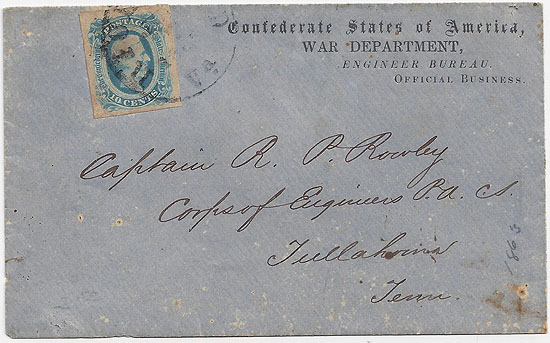 Confederate States of America,
WAR DEPARTMENT,
ENGINEER BUREAU.
OFFICIAL BUSINESS.
POSTAGE
10 CENTS
Va
Captain R. P. Rowley
Corps of Engineers P. A. C. S.
Tullahoma
Tenn.
1863